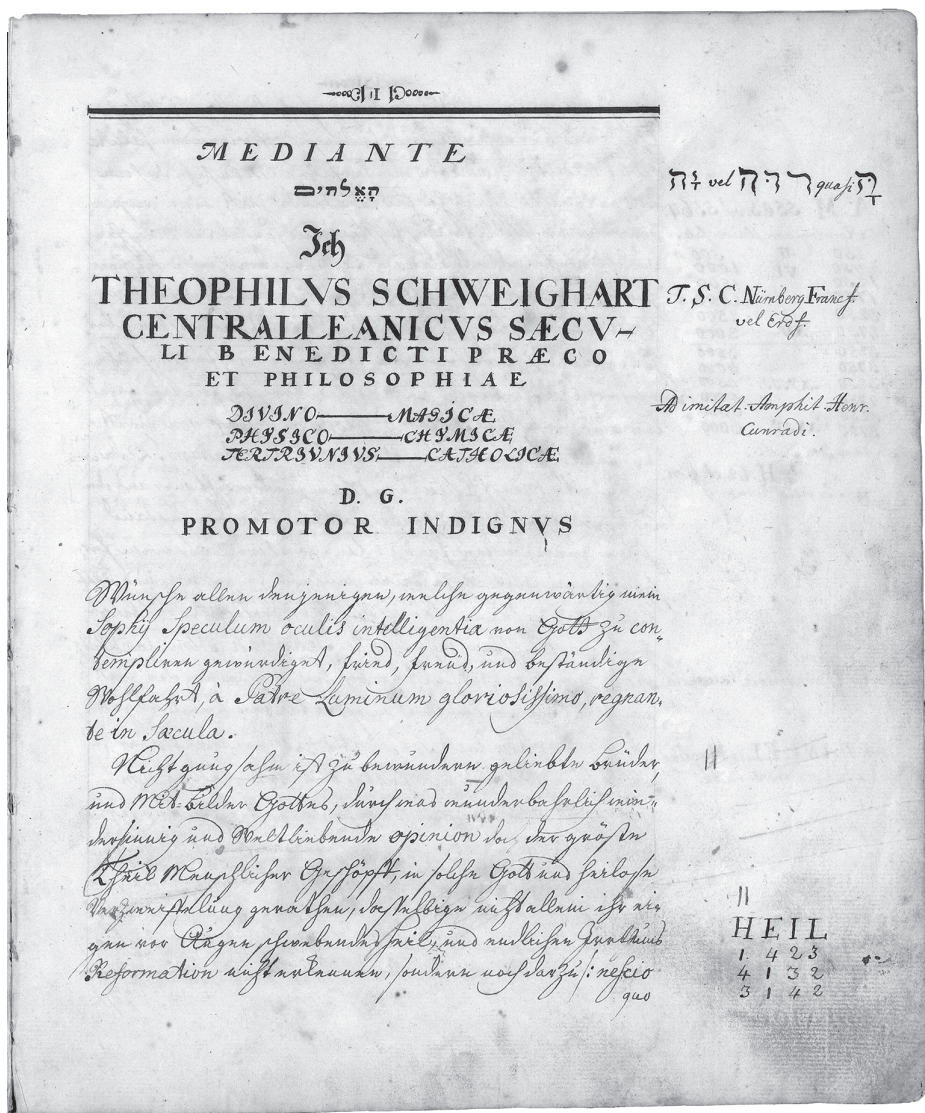 MEDIANTE
האלהים
Ich
THEOPHILVS SCHWEIGHART
CENTRALLEANICVS SÆCV-
LI BENEDICTI PRÆCO
ET PHILOSOPHIAE
DIVINO——MAGICÆ
PHYSICO——CHYMICÆ
TERTRIVNIVS——CATHOLICÆ
D. G.
PROMOTOR INDIGNVS
Wünsche allen denjenigen, welche gegenwärtig mein
Sophij Speculum oculis intelligentia von Gott zu con-
templiren gewürdiget, fried, freud, und beständige
Wohlfahrt, à Patre Luminum gloriosissimo, regnan-
te in Sæcula.
Nicht gnugsahm ist zu bewundern geliebte Brüder,
und Mit-bilder Gottes, durch was wunderbahrlich wie-
dersinnig und Weltliebende opinion da, der gröste
Theil Menschlicher Geschöpff, in solche Gott und heilose
Verzweiffelung gerathen, dasselbige nicht allein ihr ei-
gen vor Augen schwebendes heil, und endlichen
Reformation nicht erkennen, sondern noch darzu /: nescio
quo
vel quasi
T. S. C. Nürnberg Francf.
vel Erdf.
Ad imitat. Amphit. Henr.
Cunradi.
HEIL
1 4 2 3
4 1 3 2
3 1 4 2